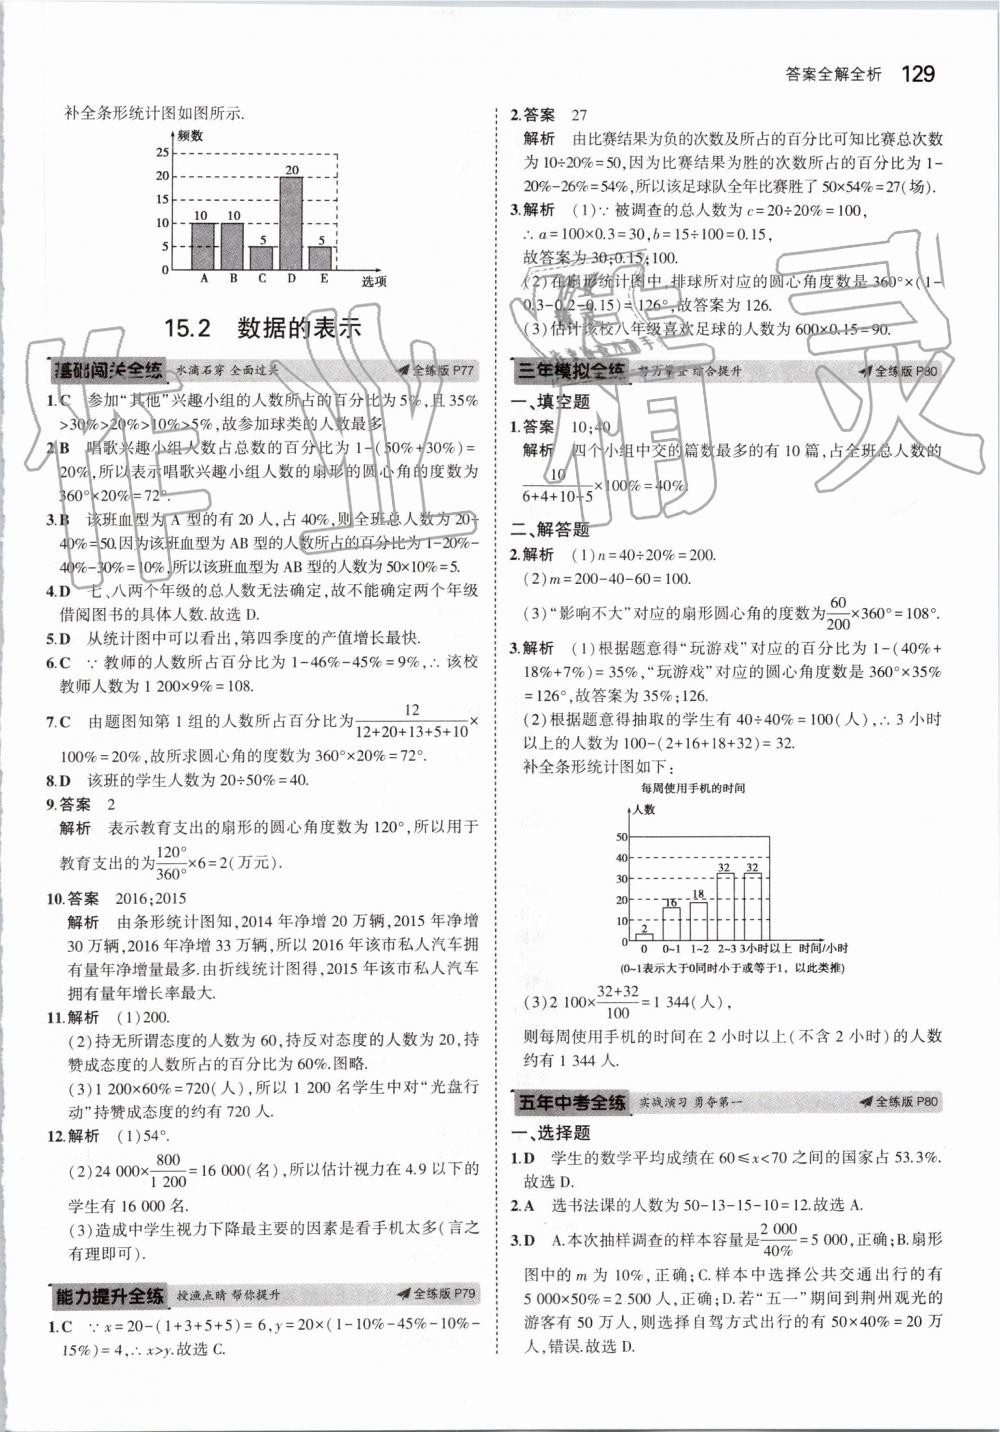 答案全解全析 129
补全条形统计图如图所示.
频数
25
20
15
10
5
0
10
10
5
20
5
A B C D E 选项
15.2 数据的表示
基础闯关全练 水滴石穿 全面过关 全练版P77
1.C 参加“其他”兴趣小组的人数所占的百分比为5%,且35%
>30%>20%>10%>5%,故参加球类的人数最多.
2.B 唱歌兴趣小组人数占总数的百分比为1-(50%+30%)=
20%,所以表示唱歌兴趣小组人数的扇形的圆心角的度数为
360°×20%=72°.
3.B 该班血型为A型的有20人,占40%,则全班总人数为20÷
40%=50.因为该班血型为AB型的人数所占的百分比为1-20%-
40%-30%=10%,所以该班血型为AB型的人数为50×10%=5.
4.D 七、八两个年级的总人数无法确定,故不能确定两个年级
借阅图书的具体人数.故选D.
5.D 从统计图中可以看出,第四季度的产值增长最快.
6.C ∵教师的人数所占百分比为1-46%-45%=9%,∴该校
教师人数为1 200×9%=108.
7.C 由题图知第1组的人数所占百分比为12/(12+20+13+5+10)×
100%=20%,故所求圆心角的度数为360°×20%=72°.
8.D 该班的学生人数为20÷50%=40.
9.答案 2
解析 表示教育支出的扇形的圆心角度数为120°,所以用于
教育支出的为120°/360°×6=2(万元).
10.答案 2016;2015
解析 由条形统计图知,2014年净增20万辆,2015年净增
30万辆,2016年净增33万辆,所以2016年该市私人汽车拥
有量年净增量最多.由折线统计图得,2015年该市私人汽车
拥有量年增长率最大.
11.解析 (1)200.
(2)持无所谓态度的人数为60,持反对态度的人数为20,持
赞成态度的人数所占的百分比为60%.图略.
(3)1 200×60%=720(人),所以1 200名学生中对“光盘行
动”持赞成态度的约有720人.
12.解析 (1)54°.
(2)24 000×800/1 200=16 000(名),所以估计视力在4.9以下的
学生有16 000名.
(3)造成中学生视力下降最主要的因素是看手机太多(言之
有理即可).
能力提升全练 授渔点睛 帮你提升 全练版P79
1.C ∵x=20-(1+3+5+5)=6,y=20×(1-10%-45%-10%-
15%)=4,∴x>y.故选C.
2.答案 27
解析 由比赛结果为负的次数及所占的百分比可知比赛总次数
为10÷20%=50,因为比赛结果为胜的次数所占的百分比为1-
20%-26%=54%,所以该足球队全年比赛胜了50×54%=27(场).
3.解析 (1)∵被调查的总人数为c=20÷20%=100,
∴a=100×0.3=30,b=15÷100=0.15,
故答案为30;0.15;100.
(2)在扇形统计图中,排球所对应的圆心角度数是360°×(1-
0.3-0.2-0.15)=126°,故答案为126.
(3)估计该校八年级喜欢足球的人数为600×0.15=90.
三年模拟全练 努力攀登 综合提升 全练版P80
一、填空题
1.答案 10;40
解析 四个小组中交的篇数最多的有10篇,占全班总人数的
10/(6+4+10+5)×100%=40%.
二、解答题
2.解析 (1)n=40÷20%=200.
(2)m=200-40-60=100.
(3)“影响不大”对应的扇形圆心角的度数为60/200×360°=108°.
3.解析 (1)根据题意得“玩游戏”对应的百分比为1-(40%+
18%+7%)=35%,“玩游戏”对应的圆心角度数是360°×35%
=126°,故答案为35%;126.
(2)根据题意得抽取的学生有40÷40%=100(人),∴3小时
以上的人数为100-(2+16+18+32)=32.
补全条形统计图如下:
每周使用手机的时间
人数
50
40
30
20
10
0
2
16
18
32
32
0 0~1 1~2 2~3 3小时以上 时间/小时
(0~1表示大于0同时小于或等于1，以此类推)
(3)2 100×(32+32)/100=1 344(人),
则每周使用手机的时间在2小时以上(不含2小时)的人数
约有1 344人.
五年中考全练 实战演习 勇夺第一 全练版P80
一、选择题
1.D 学生的数学平均成绩在60≤x<70之间的国家占53.3%.
故选D.
2.A 选书法课的人数为50-13-15-10=12.故选A.
3.D A.本次抽样调查的样本容量是2 000/40%=5 000,正确;B.扇形
图中的m为10%,正确;C.样本中选择公共交通出行的有
5 000×50%=2 500人,正确;D.若“五一”期间到荆州观光的
游客有50万人,则选择自驾方式出行的有50×40%=20万
人,错误.故选D.
作业精灵